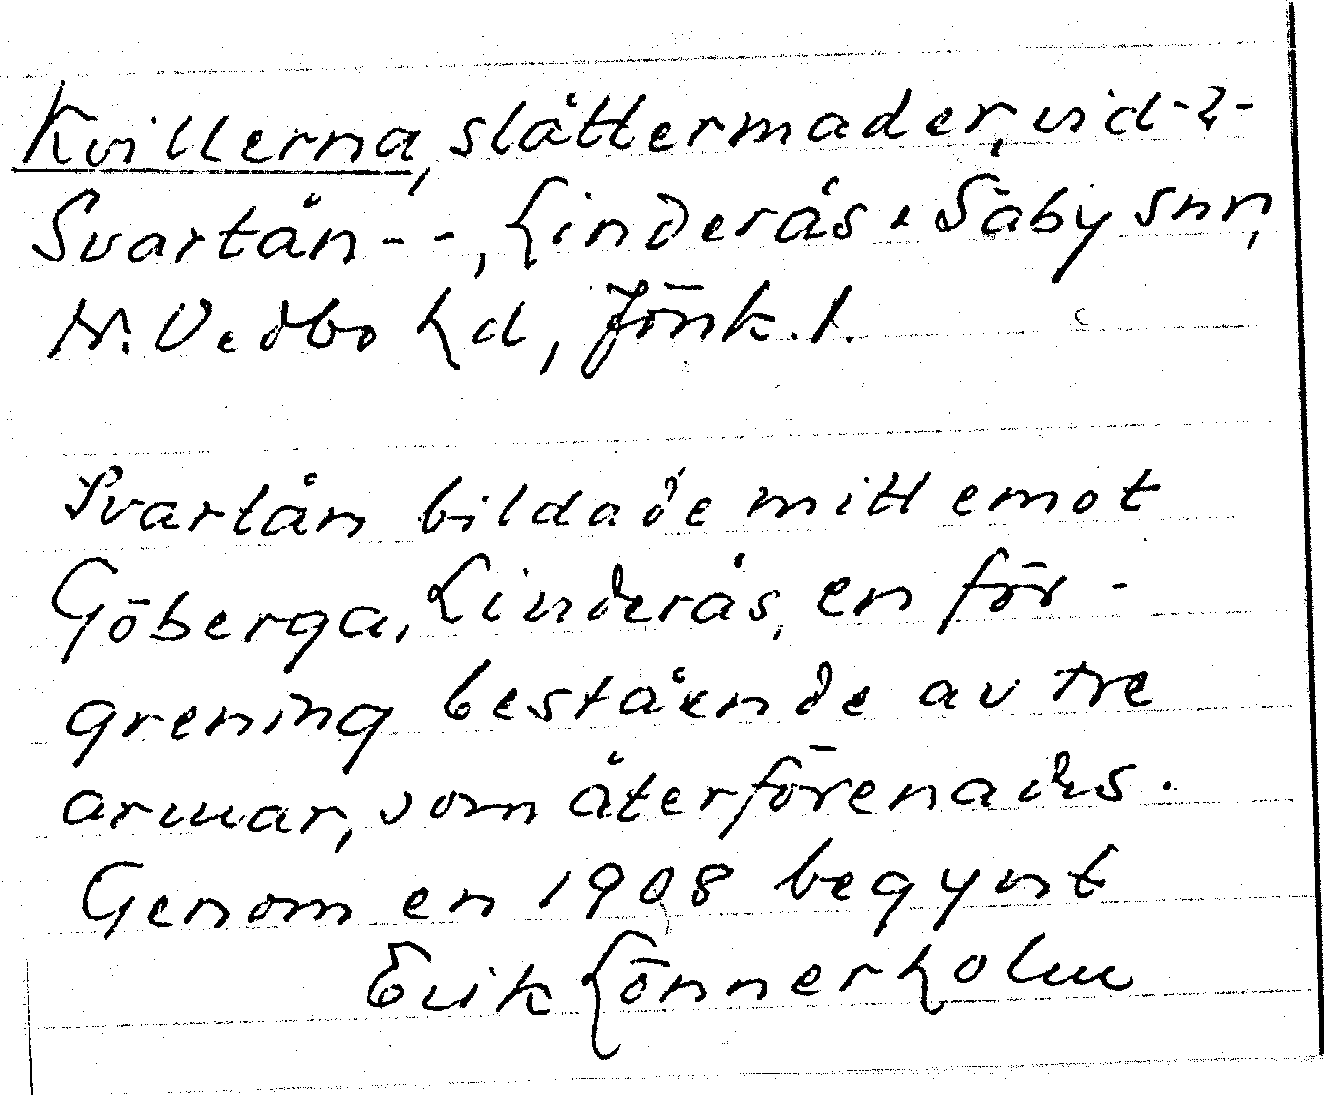 Kvillerna, slåttermader, vid -?-
Svartån - -, Linderås & Säby snr,
N. Vedbo hd, Jönk. l.
Svartån bildade mitt emot
Göberga, Linderås, en för-
grening bestående av tre
armar, som återförenades.
Genom en 1908 begynt
Erik Lönnerholm